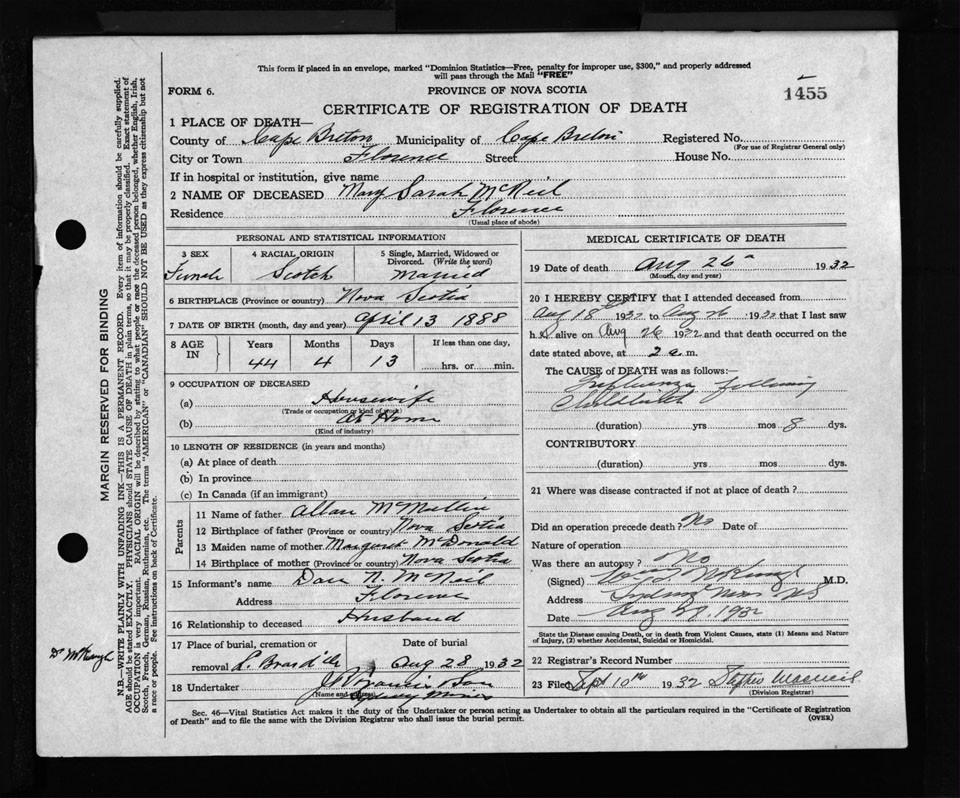 This form if placed in an envelope, marked "Dominion Statistics—Free, penalty for improper use, $300," and properly addressed
will pass through the Mail "FREE"
FORM 6.
PROVINCE OF NOVA SCOTIA
1455
CERTIFICATE OF REGISTRATION OF DEATH
1 PLACE OF DEATH—
County of Cape Breton Municipality of Cape Breton Registered No.
(For use of Registrar General only)
City or Town Florence Street House No.
If in hospital or institution, give name
2 NAME OF DECEASED Mary Sarah McNeil
Residence Florence
(Usual place of abode)
PERSONAL AND STATISTICAL INFORMATION
3 SEX 4 RACIAL ORIGIN 5 Single, Married, Widowed or
Divorced. (Write the word)
Female Scotch Married
6 BIRTHPLACE (Province or country) Nova Scotia
7 DATE OF BIRTH (month, day and year) April 13 1888
8 AGE IN Years Months Days If less than one day,
44 4 13 hrs. or min.
9 OCCUPATION OF DECEASED
(a) Housewife
(Trade or occupation or kind of work)
(b) At Home
(Kind of industry)
10 LENGTH OF RESIDENCE (in years and months)
(a) At place of death
(b) In province
(c) In Canada (if an immigrant)
Parents
11 Name of father Allan McMullin
12 Birthplace of father (Province or country) Nova Scotia
13 Maiden name of mother Margaret McDonald
14 Birthplace of mother (Province or country) Nova Scotia
15 Informant's name Dan N. McNeil
Address Florence
16 Relationship to deceased Husband
17 Place of burial, cremation or Date of burial
removal L. Bras d'Or Aug 28 1932
18 Undertaker J Francis
(Name and address) Sydney Mines
MEDICAL CERTIFICATE OF DEATH
19 Date of death Aug 26 1932
(Month, day and year)
20 I HEREBY CERTIFY that I attended deceased from
Aug 18 1932 to Aug 26 1932 that I last saw
h alive on Aug 26 1932 and that death occurred on the
date stated above, at 2 a.m.
The CAUSE of DEATH was as follows:—
Influenza following
Childbirth
(duration) yrs mos 8 dys.
CONTRIBUTORY
(duration) yrs mos dys.
21 Where was disease contracted if not at place of death?
Did an operation precede death? No Date of
Nature of operation
Was there an autopsy? No
(Signed) M.D.
Address Sydney Mines NS
Date Aug 27, 1932
State the Disease causing Death, or in death from Violent Causes, state (1) Means and Nature
of Injury, (2) whether Accidental, Suicidal or Homicidal.
22 Registrar's Record Number
23 Filed Sept 10th 1932 Stephen
(Division Registrar)
Sec. 46—Vital Statistics Act makes it the duty of the Undertaker or person acting as Undertaker to obtain all the particulars required in the "Certificate of Registration
of Death" and to file the same with the Division Registrar who shall issue the burial permit.
(OVER)
MARGIN RESERVED FOR BINDING
N.B.—WRITE PLAINLY WITH UNFADING INK—THIS IS A PERMANENT RECORD. Every item of information should be carefully supplied.
AGE should be stated EXACTLY. PHYSICIANS should STATE CAUSE OF DEATH in plain terms, so that it may be properly classified. Exact statement of
OCCUPATION is very important. RACIAL ORIGIN will be described by stating to what people or race the deceased person belonged, whether English, Irish,
Scotch, French, German, Russian, Ruthenian, etc. The terms "AMERICAN" or "CANADIAN" SHOULD NOT BE USED as they express citizenship but not
a race or people. See instructions on back of Certificate.